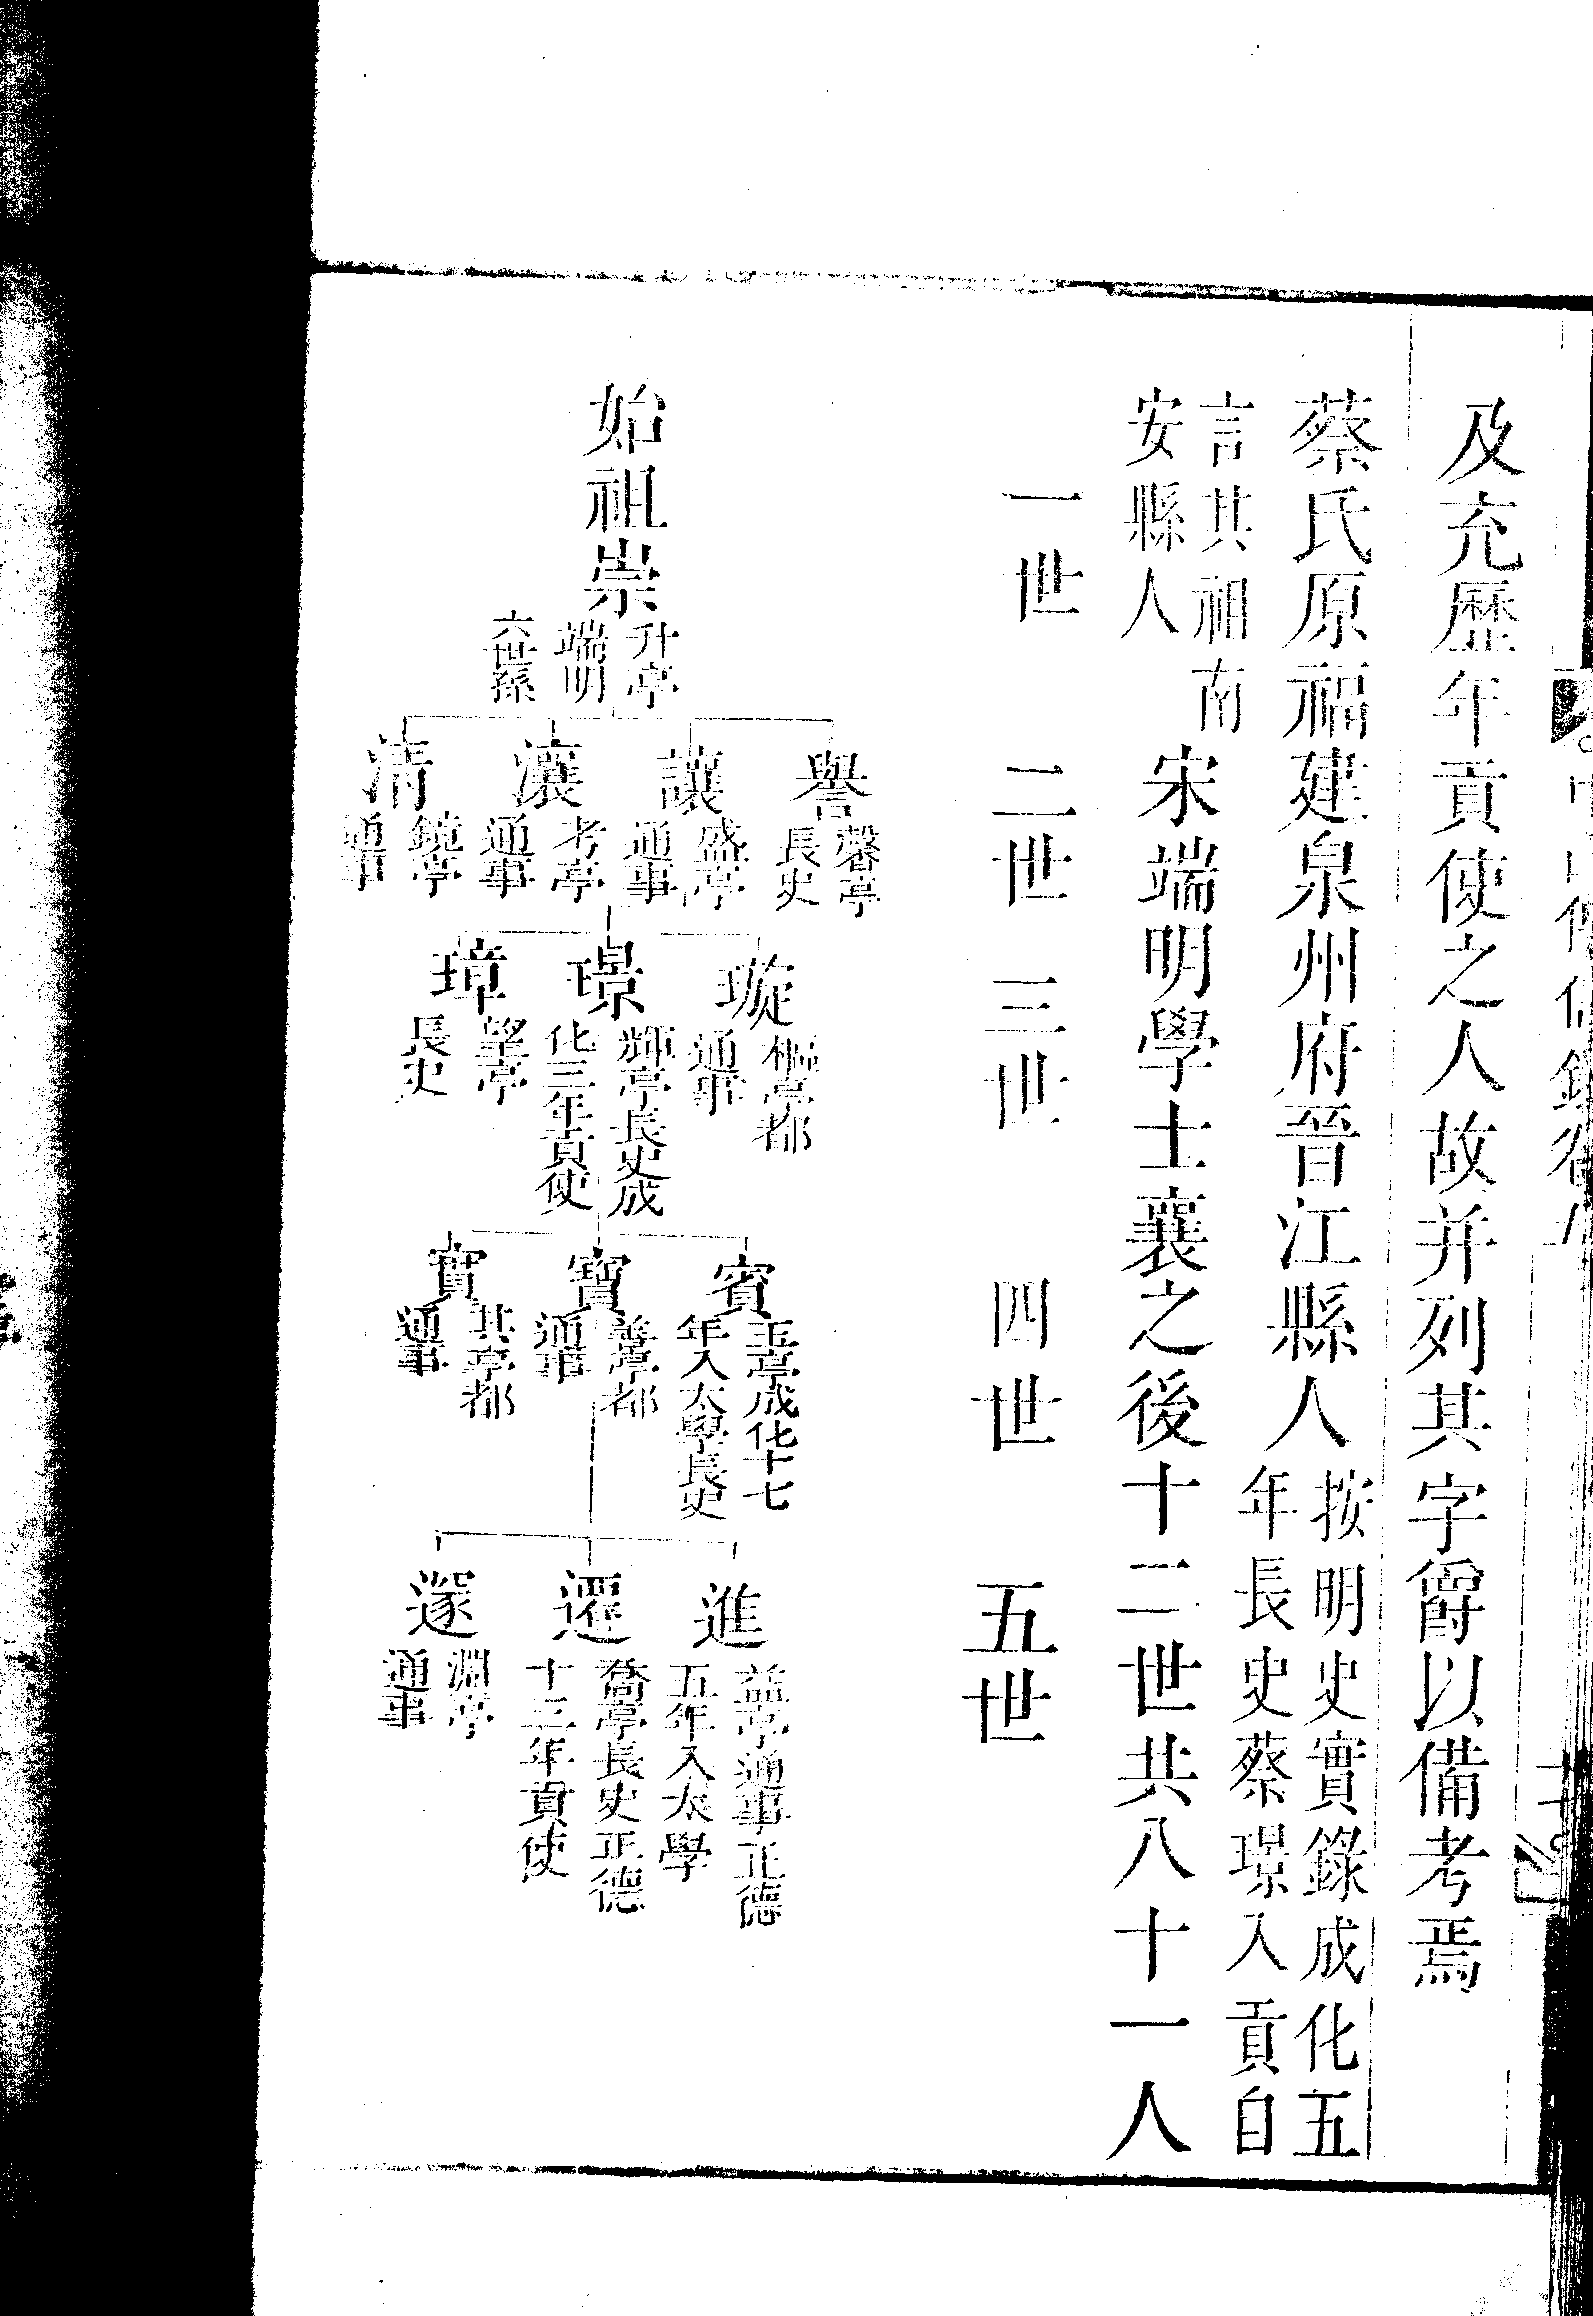 及充歷年貢使之人故并列其字爵以備考焉
蔡氏原福建泉州府晉江縣人按明史實錄成化五
年長史蔡璟入貢自
言其祖南
安縣人
宋端明學士襄之後十二世共八十一人
一世
二世
三世
四世
五世
始祖崇
升亭
端明
六世孫
譽
馨亭
長史
讓
盛亭
通事
瀼
考亭
通事
清
鏡亭
通事
璇
樞亭都
通事
璟
輝亭長史成
化三年貢使
璋
望亭
長史
賓
玉亭成化十七
年入太學長史
寶
善亭都
通事
實
其亭都
通事
進
益亭通事正德
五年入太學
遷
喬亭長史正德
十三年貢使
邃
淵亭
通事